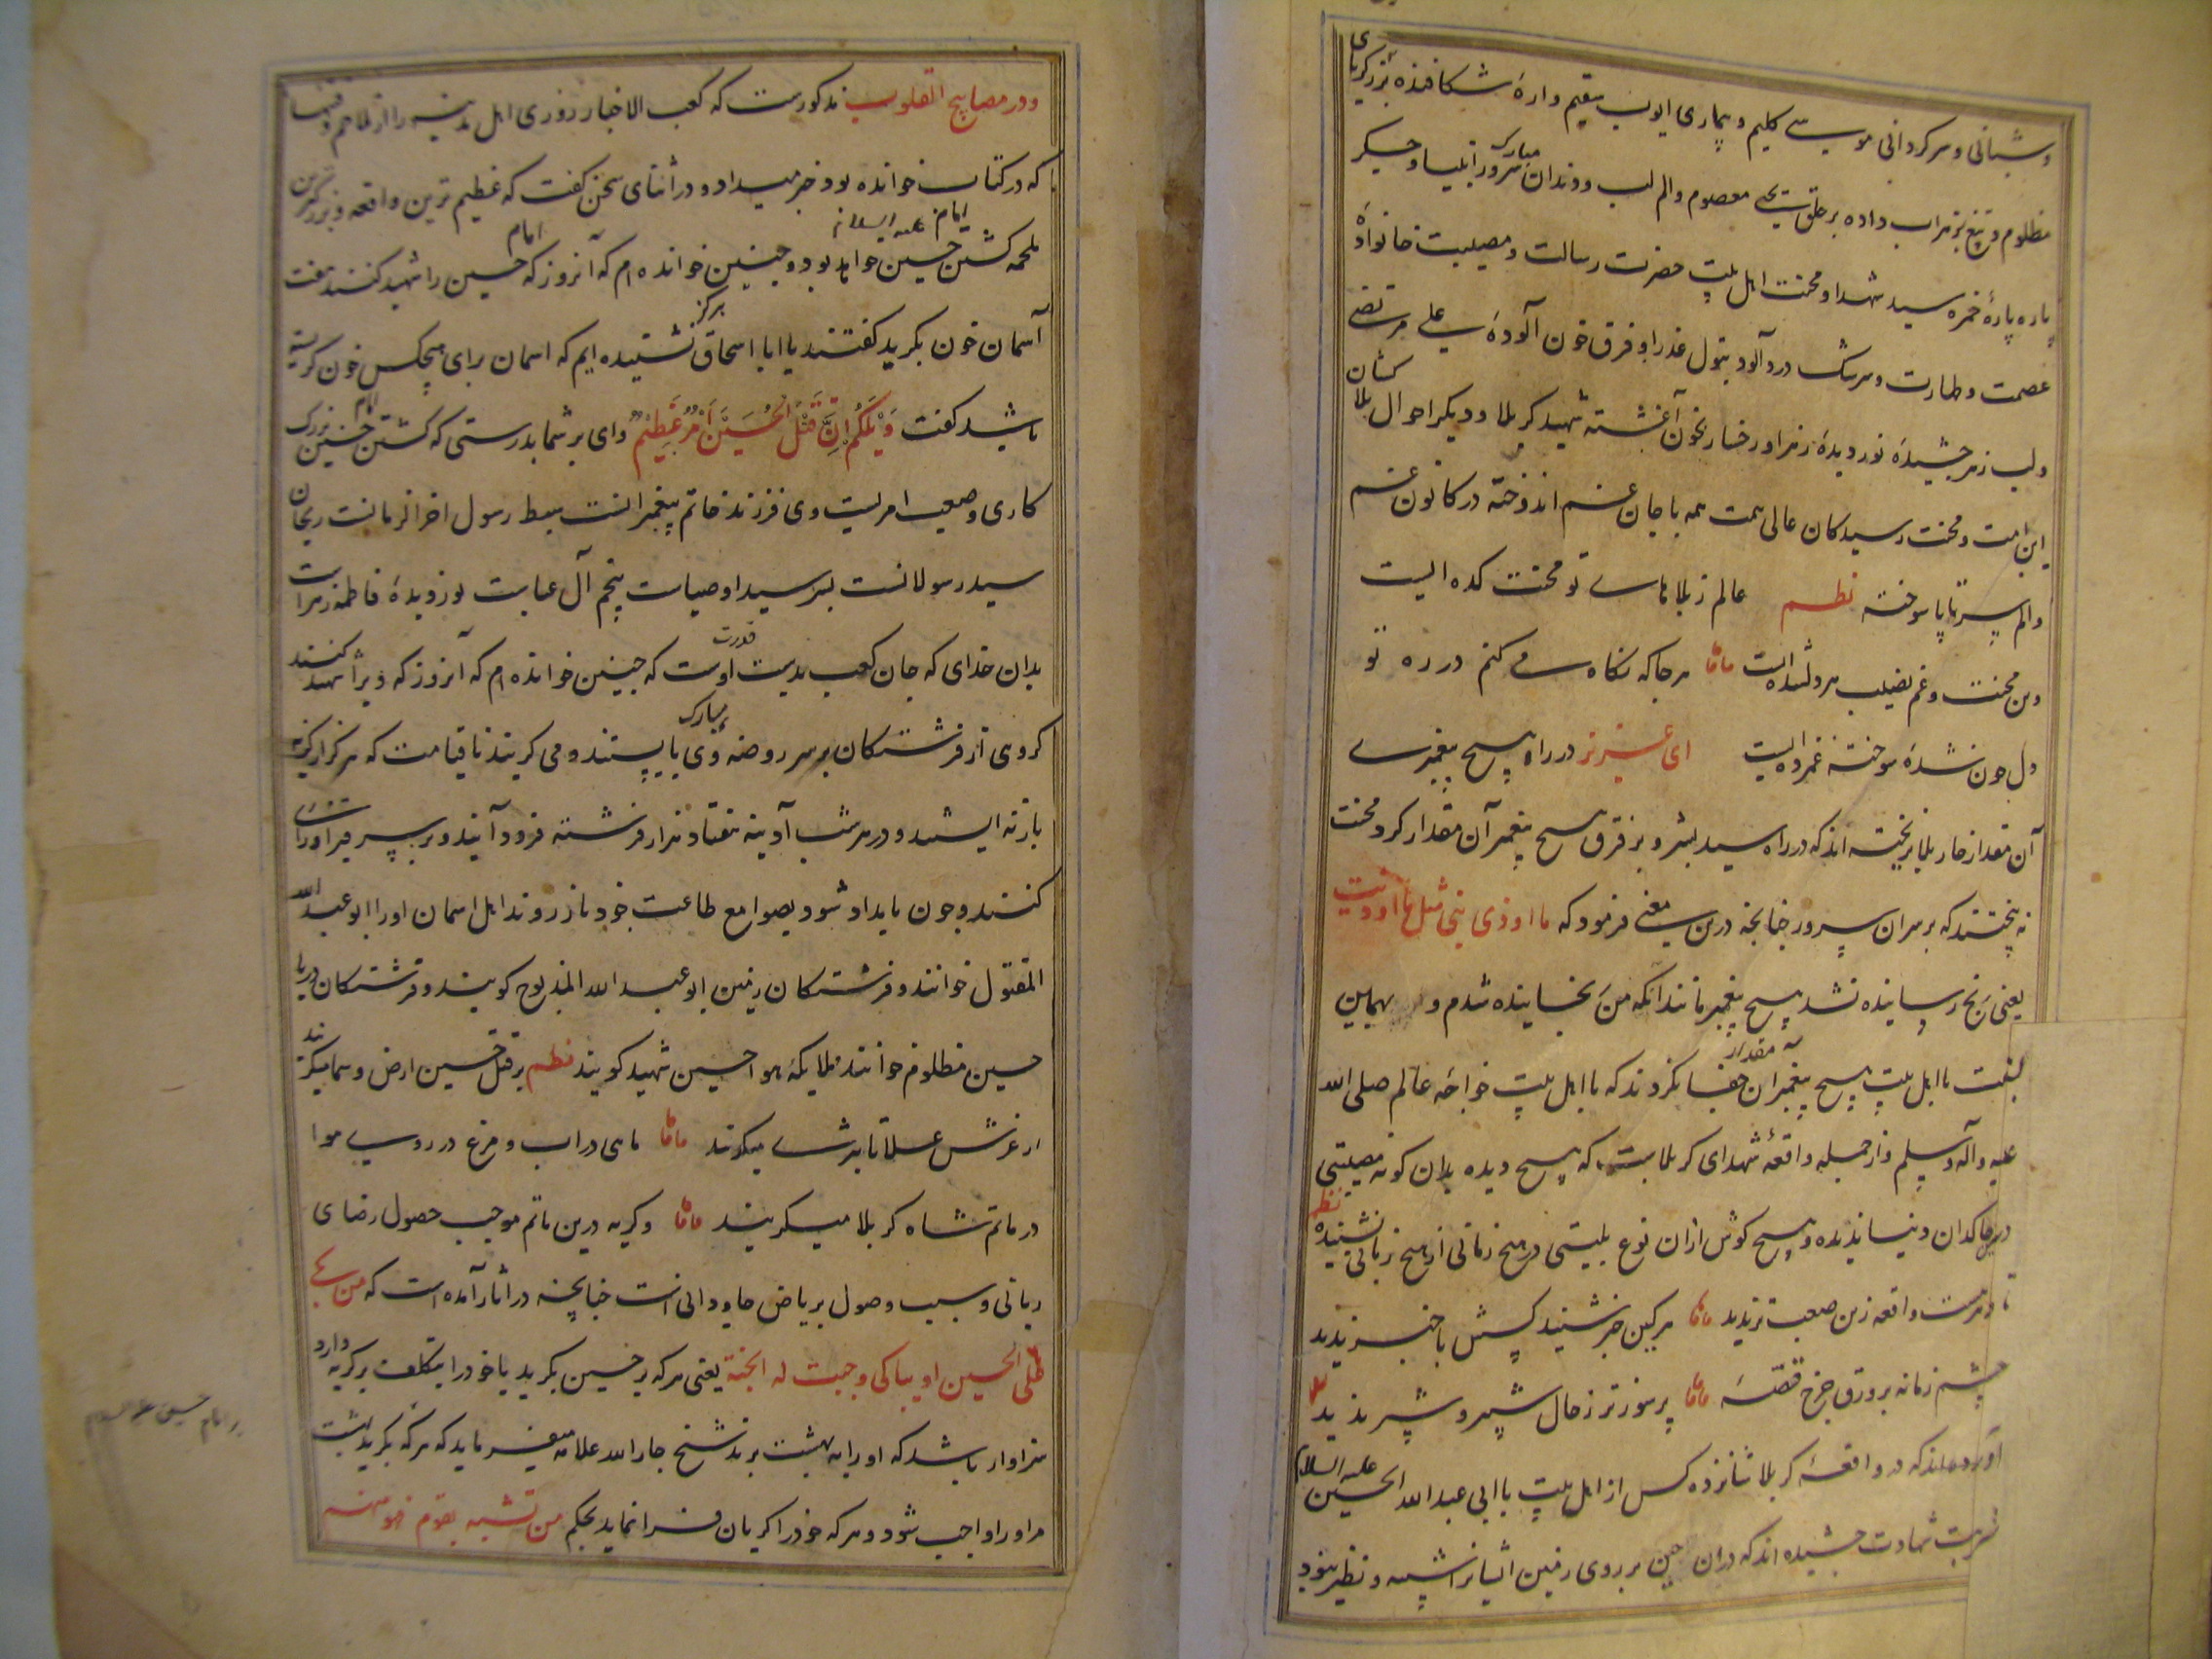 و شبانی و سرکردانی موسی کلیم و بیماری ایوب سقیم و ارهٔ شکافنده بر زکریای
مظلوم و تیغ زهراب داده بر حلق یحیی معصوم و الم لب و دندان مبارک سرور انبیا و جگر
پاره پارهٔ حمزه سید شهدا و محنت اهل بیت حضرت رسالت و مصیبت خانوادهٔ
عصمت و طهارت و سرشک دردآلود بتول عذرا و فرق خون آلودهٔ علی مرتضی
و لب زهر چشیدهٔ نور دیدهٔ زهرا و رخسار بخون آغشته شهید کربلا و دیکر احوال بلاکشان
این امت و محنت رسیدکان عالی همت همه با جان غم اندوخته در کانون غم
و الم سر تا پا سوخته نظم عالم ز بلاهای تو محنت کده ایست
وین محنت و غم نصیب هر دلشده ایست هر جا که نکاه می کنم در ره تو
دل خون شدهٔ سوخته غمزده ایست ای عزیز در راه هیچ پیغمبری
آن مقدار خار بلا نریخته اند که در راه سید بشر و بر فرق هیچ پیغمبر آن مقدار کرد محنت
نه بیختند که بر سر آن سرور چنانچه درین معنی فرمود که ما اوذی نبی مثل ما اوذیت
یعنی رنج رسانیده نشد هیچ پیغمبر مانند آنکه من رنجانیده شدم و همچنین
نسبت با اهل بیت هیچ پیغمبران آن مقدار جفا نکردند که با اهل بیت خواجه عالم صلی الله
علیه و آله و سلم و از جمله واقعهٔ شهدای کربلاست که هیچ دیده بدان کونه مصیبتی
در خاکدان دنیا ندیده و هیچ کوش ازان نوع بلیتی در هیچ زمانی از هیچ زبانی نشنیده نظم
تا دور واقعه زین صعبتر ندید هر کین خبر شنید کسش با خبر ندید
چشم زمانه بر ورق چرخ قصهٔ پر سوزتر ز حال شبیر و شبر ندید
آورده اند که در واقعهٔ کربلا شانزده کس از اهل بیت با ابی عبد الله الحسین علیه السلام
شربت شهادت چشیده اند که دران حین بر روی زمین ایشانرا شبیه و نظیر نبود
و در مصابیح القلوب مذکورست که کعب الاخبار روزی اهل مدینه را از ملاحم و فتنها
که در کتاب خوانده بود خبر میداد و در اثنای سخن کفت که عظیم ترین واقعه و بزرکترین
ملحمه کشتن امام حسین علیه السلام خواهد بود و چنین خوانده ام که آنروز که امام حسین را شهید کنند هفت
آسمان خون بکرید کفتند یا ابا اسحاق هرکز نشنیده ایم که اسمان برای هیچکس خون کریسته
باشید کفت وَیْلَکُمْ اِنَّ قَتْلَ الْحُسَیْنَ اَمْرٌ عَظِیْمٌ وای بر شما بدرستی که کشتن امام حسین بزرک
کاری و صعب امریست وی فرزند خاتم پیغمبرانست سبط رسول اخر الزمانست ریحان
سید رسولانست پسر سید اوصیاست پنجم آل عباست نور دیدهٔ فاطمه زهراست
بدان خدای که جان کعب بدست قدرت اوست که چنین خوانده ام که آنروز که ویرا شهید کنند
کروهی از فرشتکان بر سر روضه مبارک وی بایستند و می کریند تا قیامت که هرکز از کریه
باز نه ایستند و در هر شب آدینه هفتاد هزار فرشته فرود آیند و بر سر قبر او زاری
کنند و چون بامداد شود بصوامع طاعت خود باز روند اهل اسمان او را ابو عبد الله
المقتول خوانند و فرشتکان زمین ابو عبد الله المذبوح کویند و فرشتکان دریا
حسین مظلوم خوانند و ملایکهٔ هوا حسین شهید کویند نظم بر قتل حسین ارض و سما میکریند
از عرش علا تا بثری میکریند ماهی در اب و مرغ در روی هوا
در ماتم شاه کربلا میکریند و کریه درین ماتم موجب حصول رضای
ربانی و سبب وصول بریاض جاودانی است چنانچه در اثار آمده است که من بکی
علی الحسین او تباکی وجبت له الجنة یعنی هر که بر حسین بکرید یا خود را بتکلف بر کریه دارد
سزاوار باشد که او را به بهشت برند شیخ جار الله علامه میفرماید که هر که بکرید بهشت
مر او را واجب شود و هر که خود را کریان فرا نماید بحکم من تشبه بقوم فهو منهم
بر امام حسین علیه السلام